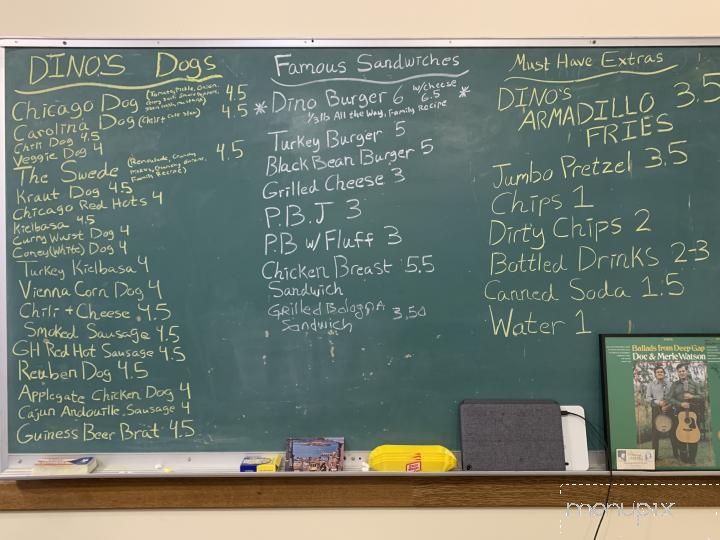 DINO'S Dogs
Chicago Dog (Tomato, Pickle, Onion, 4.5
Carolina Dog (Chili + Cole Slaw) 4.5
Chili Dog 4.5
Veggie Dog 4
The Swede (Remoulade, Crunchy 4.5
Family Recipe)
Kraut Dog 4.5
Chicago Red Hots 4
Kielbasa 4.5
Curry Wurst Dog 4
Coney (White) Dog 4
Turkey Kielbasa 4
Vienna Corn Dog 4
Chili + Cheese 4.5
Smoked Sausage 4.5
GH Red Hot Sausage 4.5
Reuben Dog 4.5
Applegate Chicken Dog 4
Cajun Andouille Sausage 4
Guiness Beer Brat 4.5
Famous Sandwiches
* Dino Burger 6 w/cheese 6.5 *
1/3 lb All the Way, Family Recipe
Turkey Burger 5
Black Bean Burger 5
Grilled Cheese 3
P.B.J 3
P.B w/Fluff 3
Chicken Breast 5.5
Sandwich
Grilled Bologna 3.50
Sandwich
Must Have Extras
DINO'S
ARMADILLO 3.5
FRIES
Jumbo Pretzel 3.5
Chips 1
Dirty Chips 2
Bottled Drinks 2-3
Canned Soda 1.5
Water 1
Ballads from Deep Gap
Doc & Merle Watson
menupix